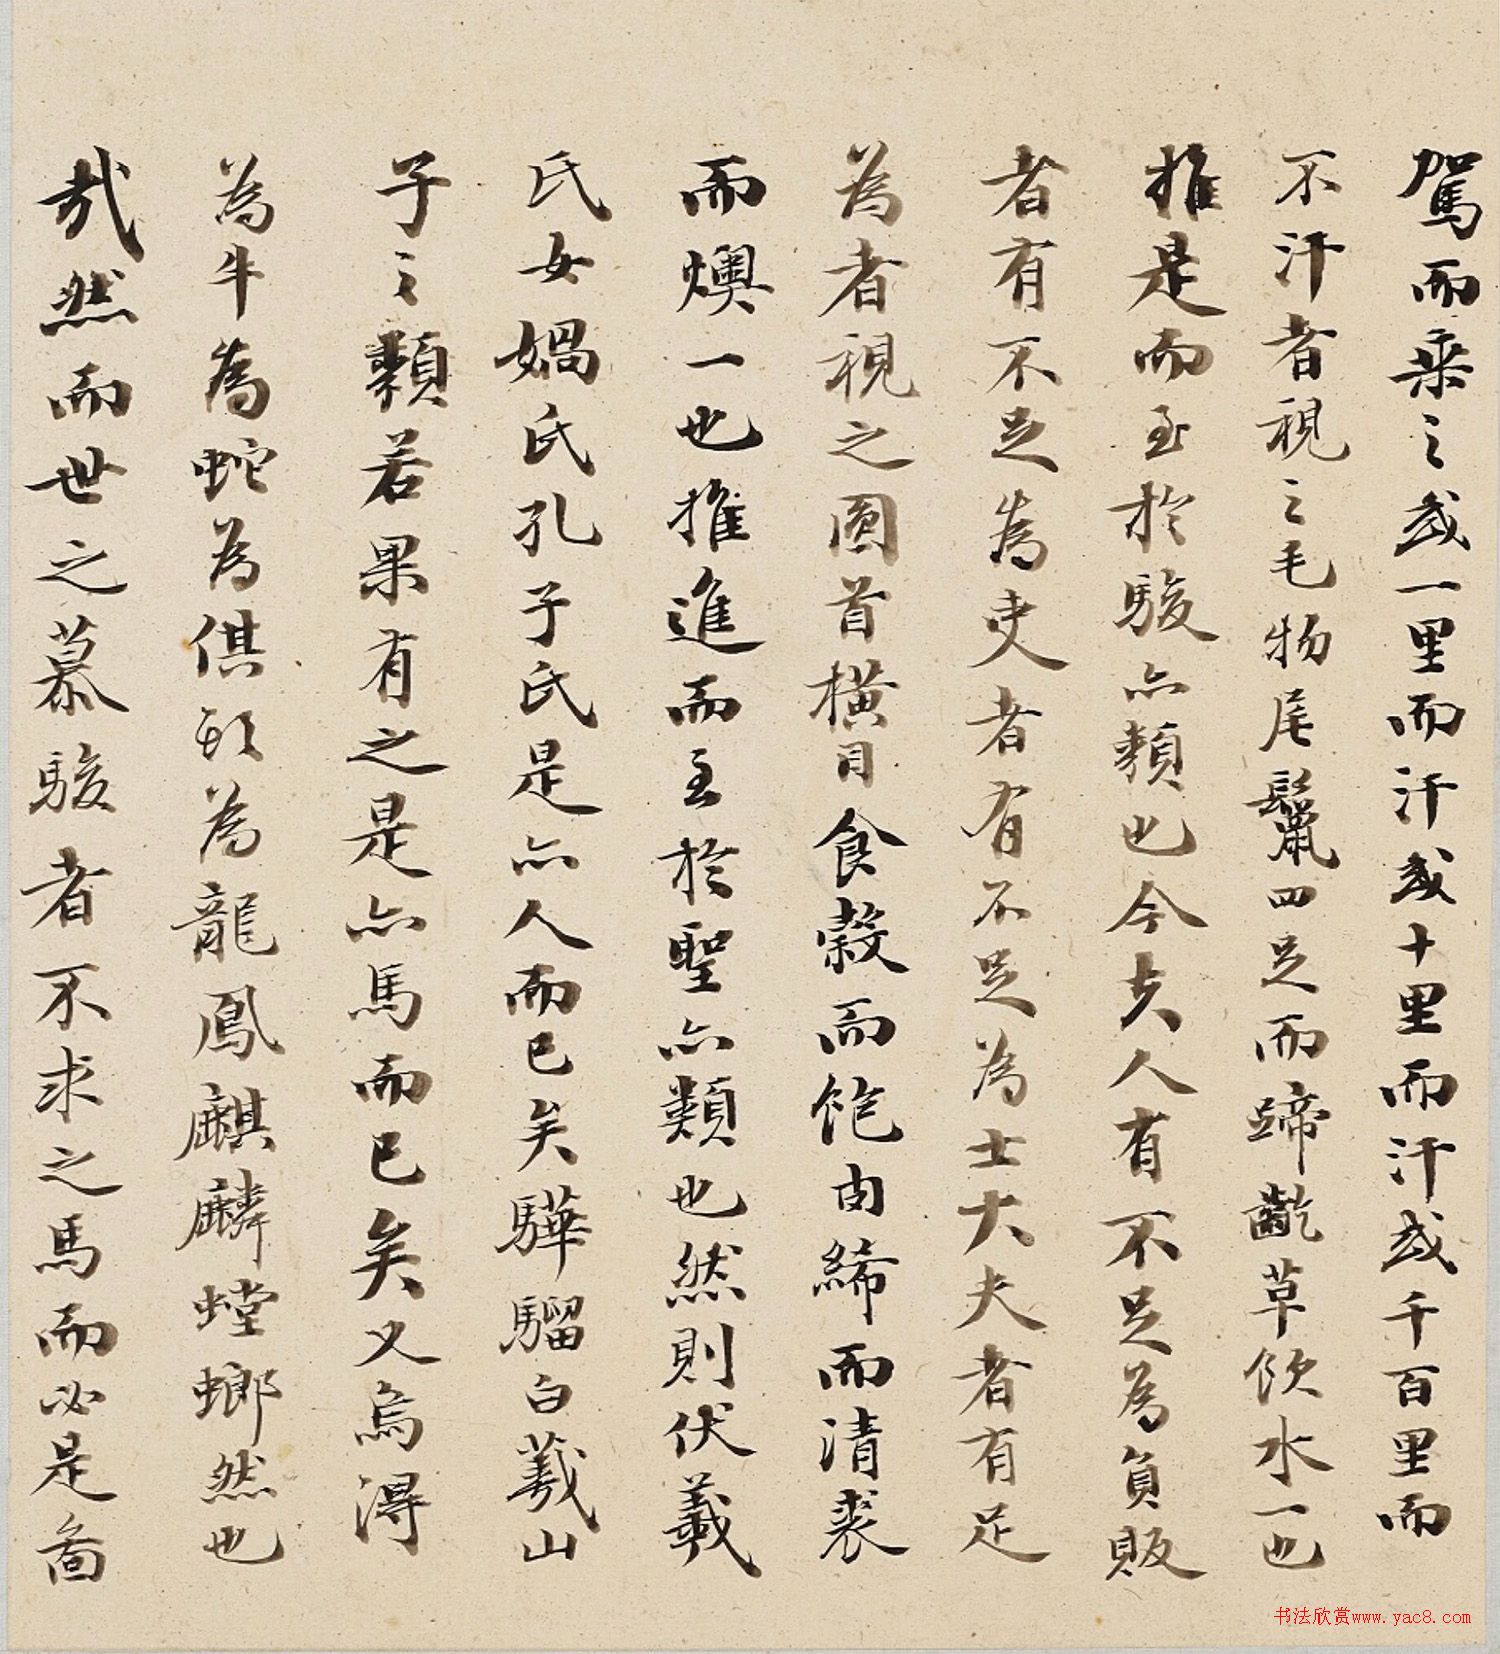 駕而乘之或一里而汗或十里而汗或千百里而
不汗者視之毛物尾鬣四足而蹄齕草飲水一也
推是而至於駿亦類也今夫人有不足為負販
者有不足為吏者有不足為士大夫者有足
為者視之圓首橫目食穀而飽肉絺而清裘
而燠一也推進而至於聖亦類也然則伏羲
氏女媧氏孔子氏是亦人而已矣驊騮白羲山
子之類若果有之是亦馬而已矣又烏得
為牛為蛇為倛頭為龍鳳麒麟螳螂然也
哉然而世之慕駿者不求之馬而必是圖
书法欣赏www.yac8.com